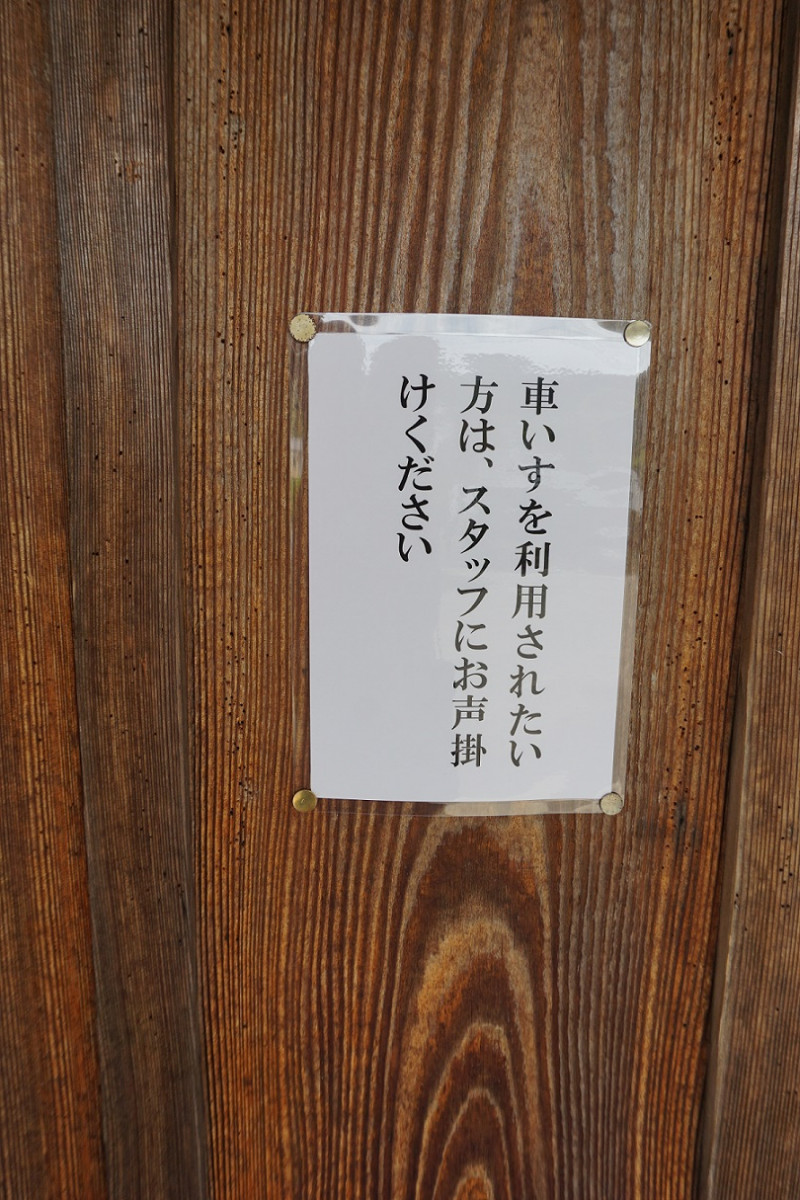 車いすを利用されたい
方は、スタッフにお声掛
けください